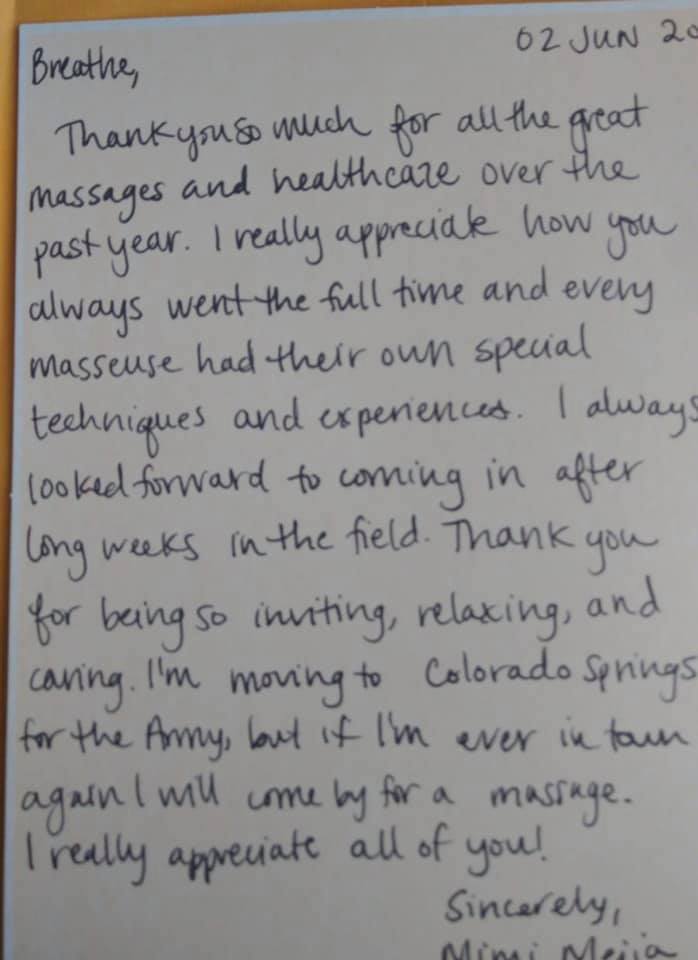 02 JUN 20
Breathe,
Thank you so much for all the great
massages and healthcare over the
past year. I really appreciate how you
always went the full time and every
masseuse had their own special
techniques and experiences. I always
looked forward to coming in after
long weeks in the field. Thank you
for being so inviting, relaxing, and
caring. I'm moving to Colorado Springs
for the Army, but if I'm ever in town
again I will come by for a massage.
I really appreciate all of you!
Sincerely,
Mimi Mejia